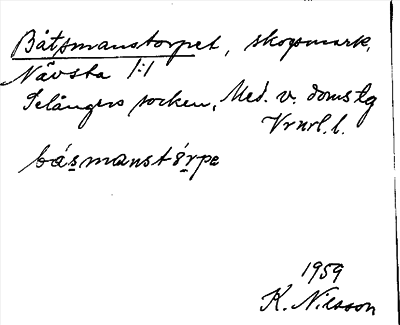 Båtsmanstorpet, skogsmark,
Nävsta 1:1
Selångers socken, Med. v. doms lg
Vrnrl. l.
básmanstórpe
1959
K. Nilsson